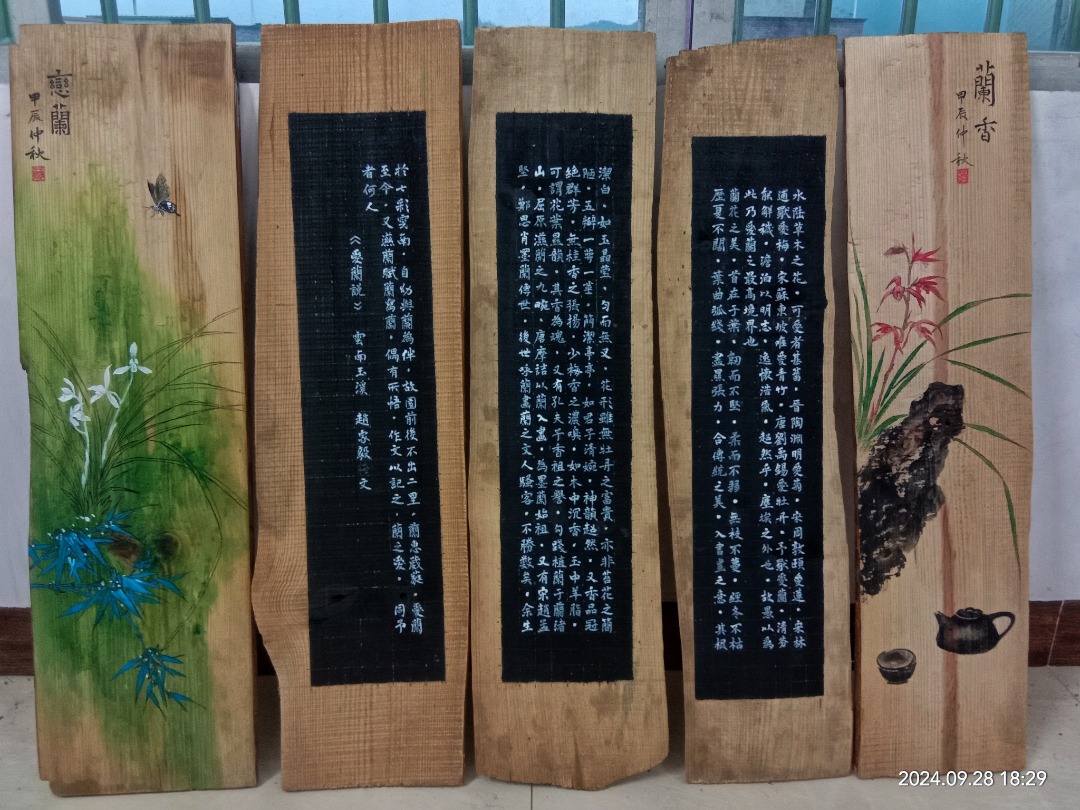 蘭香
甲辰仲秋
水陸草木之花·可愛者甚蕃·晉陶淵明愛菊·宋周敦頤愛蓮·宋林
逋獨愛梅·宋蘇東坡唯愛青竹·唐劉禹錫愛牡丹·予獨愛蘭·清芳
能解穢·澹泊以明志·逸懷浩氣·超然乎·塵埃之外也·故以為
此乃愛蘭之最高境界也
蘭花之美·首在于葉·韌而不堅·柔而不弱·無枝不蔓·經冬不枯
歷夏不悶·葉曲弧綫·盡顯張力·合傳統之美·入書畫之意·其根
潔白·如玉晶瑩·勻而無叉·花形雖無牡丹之富貴·亦非苔花之簡
陋·五瓣一萼一蕊·簡潔亭亭·如君子清婉·神韻超然·又香品冠
絕群芳·無桂香之張揚·少梅之濃·如木中沉香·玉中羊脂·
可謂花葉異韻·其香為魂·又有孔夫子香祖之譽·勾踐植蘭于蘭渚
山·屈原滋蘭之九畹·唐摩詰以蘭入畫·為墨蘭始祖·又有宋趙孟
堅·鄭思肖墨蘭傳世·後世咏蘭畫蘭之文人騷客·不勝數矣·余生
於七彩雲南·自幼與蘭為伴·故園前後不出二里·蘭惠葳蕤·愛蘭
至今·又蘭賦蘭寫蘭·偶有所悟 作文以記之 蘭之愛·同予
者何人
《愛蘭説》 雲南玉溪 趙家毅 文
戀蘭
甲辰仲秋
2024.09.28 18:29